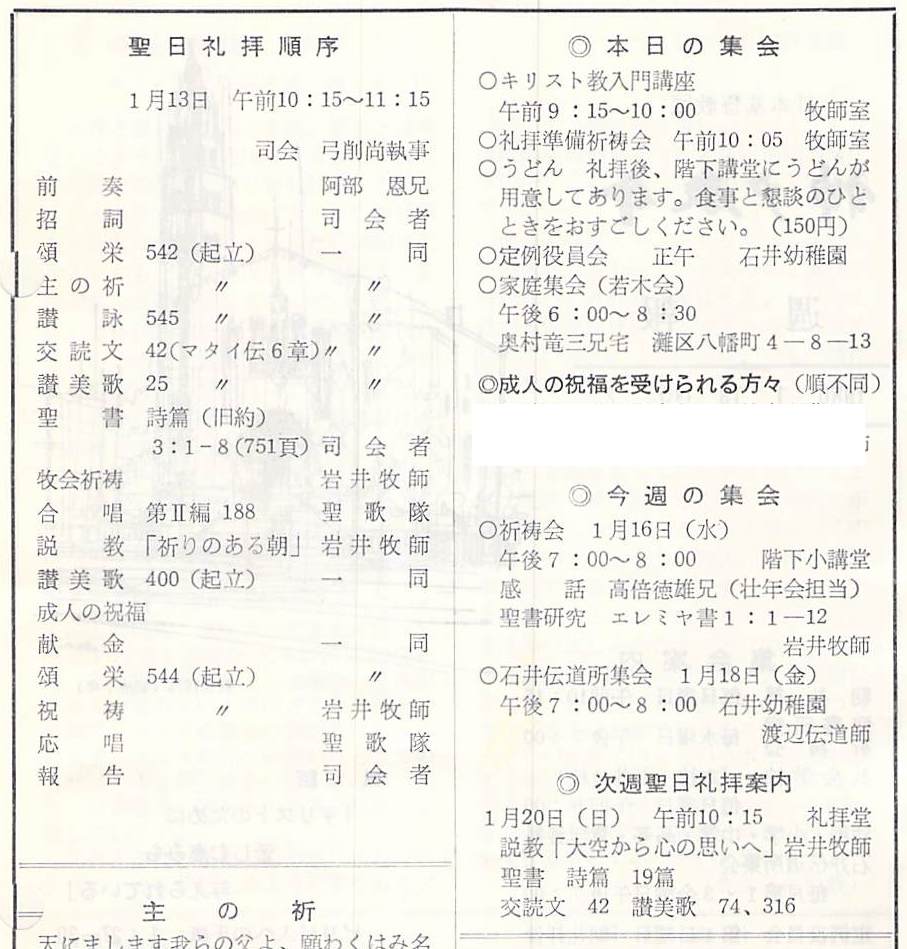 聖日礼拝順序
1月13日 午前10：15～11：15
司会 弓削尚執事
前奏 阿部 恩兄
招詞 司会者
頌栄 542（起立） 一同
主の祈 〃 〃
讃詠 545 〃 〃
交読文 42(マタイ伝6章)〃 〃
讃美歌 25 〃 〃
聖書 詩篇（旧約）
3：1－8（751頁） 司会者
牧会祈祷 岩井牧師
合唱 第Ⅱ編 188 聖歌隊
説教「祈りのある朝」 岩井牧師
讃美歌 400（起立） 一同
成人の祝福
献金 一同
頌栄 544（起立） 〃
祝祷 〃 岩井牧師
応唱 聖歌隊
報告 司会者
主の祈
天にまします我らの父よ、願わくはみ名
◎ 本日の集会
○キリスト教入門講座
午前9：15～10：00 牧師室
○礼拝準備祈祷会 午前10：05 牧師室
○うどん 礼拝後、階下講堂にうどんが
用意してあります。食事と懇談のひと
ときをおすごしください。（150円）
○定例役員会 正午 石井幼稚園
○家庭集会（若木会）
午後6：00～8：30
奥村竜三兄宅 灘区八幡町4－8－13
◎成人の祝福を受けられる方々（順不同）
◎ 今週の集会
○祈祷会 1月16日（水）
午後7：00～8：00 階下小講堂
感話 高倍徳雄兄（壮年会担当）
聖書研究 エレミヤ書1：1－12
岩井牧師
○石井伝道所集会 1月18日（金）
午後7：00～8：00 石井幼稚園
渡辺伝道師
◎ 次週聖日礼拝案内
1月20日（日） 午前10：15 礼拝堂
説教「大空から心の思いへ」岩井牧師
聖書 詩篇 19篇
交読文 42 讃美歌 74、316